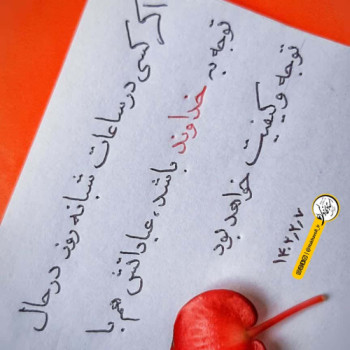 اگر کسی در ساعات شبانه روز در حال
توجه به خداوند باشد، عباداتش هم با
توجه و کیفیت خواهد بود
۱۴۰۲٫۲٫۷